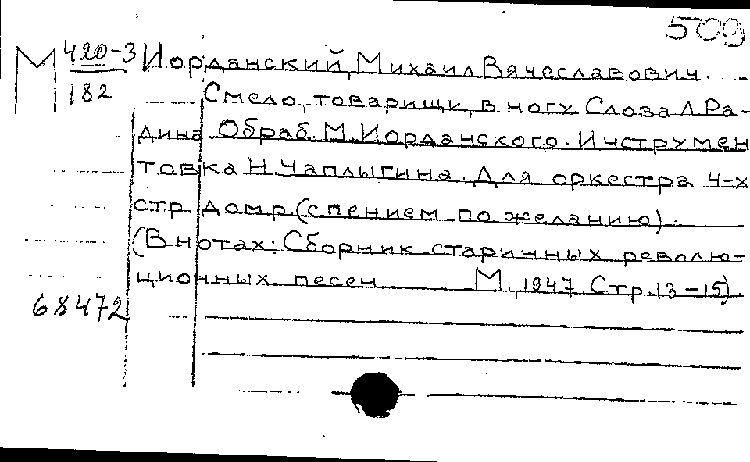 509
М 420-3
182
Иорданский, Михаил Вячеславович.
Смело, товарищи, в ногу Слова Л. Ра-
дина Обраб. М. Иорданского. Инструмен
товка Н. Чаплыгина. Для оркестра 4-х
стр домр (с пением по желанию).
(В нотах: Сборник старинных револю-
ционных песен М, 1947 Стр. 13-15)
68472